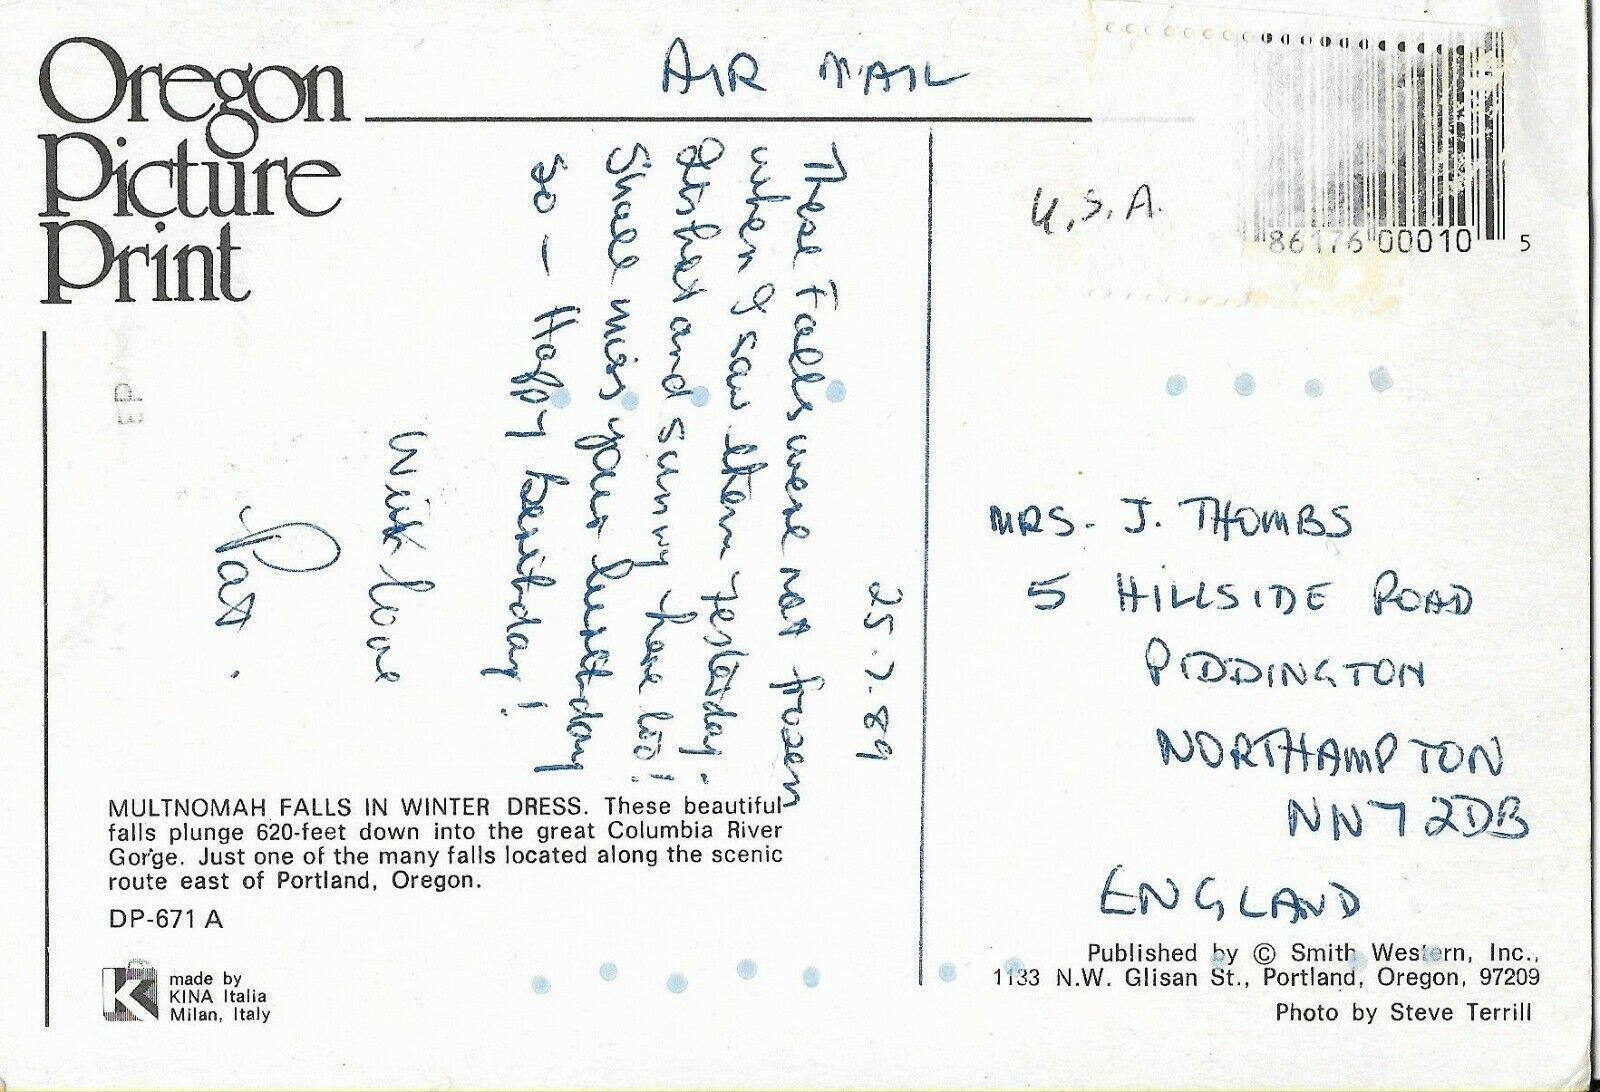 Oregon
Picture
Print
AIR MAIL
U.S.A.
86176 00010 5
25.7.89
These Falls were not frozen
when I saw them yesterday.
Its hot and sunny here too!
Shall miss your birthday
so — Happy birthday!
With love
Pat.
MRS. J. THOMBS
5 HILLSIDE ROAD
PIDDINGTON
NORTHAMPTON
NN7 2DB
ENGLAND
MULTNOMAH FALLS IN WINTER DRESS. These beautiful
falls plunge 620-feet down into the great Columbia River
Gorge. Just one of the many falls located along the scenic
route east of Portland, Oregon.
DP-671 A
K
made by
KINA Italia
Milan, Italy
Published by © Smith Western, Inc.,
1133 N.W. Glisan St., Portland, Oregon, 97209
Photo by Steve Terrill